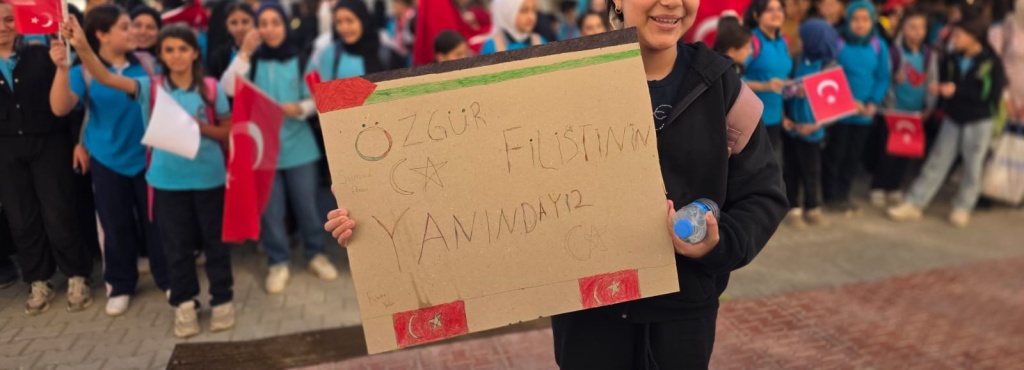 ÖZGÜR
FİLİSTİNİN
YANINDAYIZ